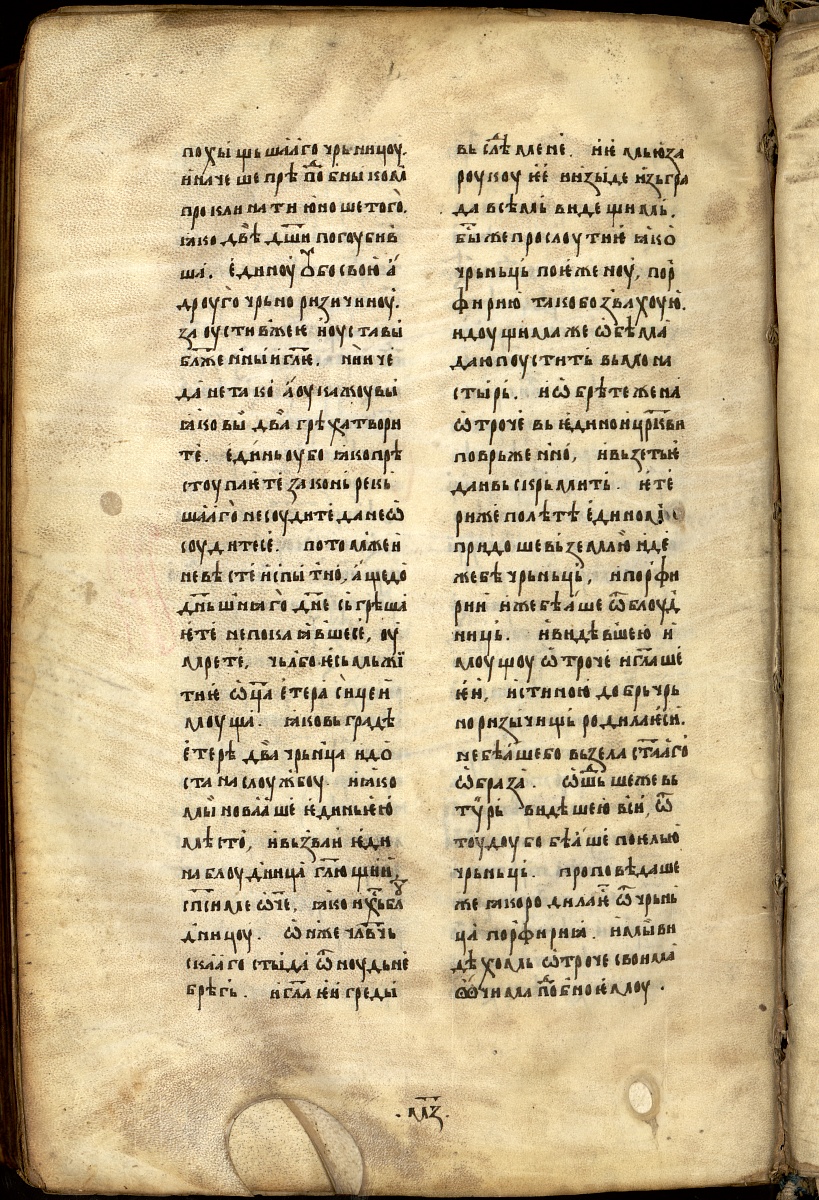 похы щьшааго чрьницоу.
иначеше прѣпⷣобныкомⸯ
проклинати юношетого.
ꙗко двѣ дш҃и погоубив
ша. единоу ѹбо свою а
дроугого чрьноризичиноу.
заоустивжеѥ иоуставы
блж҃енныи гл҃ѥ. нинче
данетако аоукажоувы
ꙗковы два грѣхатвори
те. единьоубо ꙗкопрѣ
стоупаѥте законь рекь
шааго несоудите данеѡ
соудитесе. потомжеи
невѣсте испытно, ащедо
дн҃ьшнꙗго дн҃е сьгрѣша
ѥте непокаꙗвшесе, оу
мрете, чьлбоѥсьмьжї
тиѥ ѡц҃а етера сицеи
моуща. ꙗковьградѣ
етерѣ два чрьнца идо
станаслоужбоу. иꙗко
миноваше ѥдиньѥю
мѣсто, ивьзваи ѥди
наблоудница гл҃ющии,
сп҃симе ѡч҃е, ꙗкоих҃ьблѹ
дницоу. ѡниже члв҃чь
скааго стыда ѿноудьне
брѣгь. игл҃а ѥи греды
вьслѣⷣмене. иѥмьюза
роукоу ѥе иизыде изьгра
да всѣмь видещимь.
бы҃же прослоутиѥ ꙗко
чрьньць поѥженоу, пор
фирию такобозвахоую.
идоущимаже ѡбѣма
даюпоустить вьмона
стырь. иѡбрѣтежена
ѡтроче вьѥдинои цр҃кви
поврьженно, ивьзетьѥ
даивьскрьмить. ѥте
рижеполѣтѣ единомь
придошевьземлю иде
жебѣ чрьньць, ипорфи
рии ижебѣаше ѿблоуд
ниць. ивидѣвшею и
моущоу ѡтроче иглаше
ѥи, истиною добрѣчрь
норизычищь родилаѥси.
небѣашебо вьзела ст҃ааго
ѡбраза. ѡшⷣьшежевь
тѵрь видѣшею вси, ѿ
тоудоубо бѣаше поѥлью
чрьньць. проповѣдаше
же ꙗкородилаѥⷭ ѿчрьнь
ца порфириꙗ. имыви
дѣхомь ѡтроче своима
ѻчима пⷣобноѥмоу.
мз҃